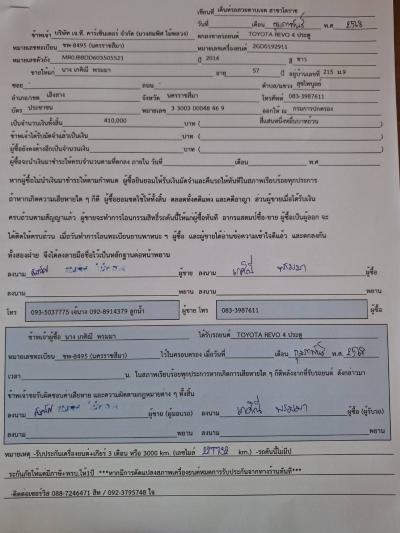 เขียนที่ เต็นท์รถสวยตามเจต สาขาโคราช
วันที่ เดือน กุมภาพันธ์ พ.ศ. 2568
ข้าพเจ้า บริษัท เจ.ที. คาร์เซ็นเตอร์ จำกัด (นางสมพิศ ไม้พลวง) ตกลงขายรถยนต์ TOYOTA REVO 4 ประตู
หมายเลขทะเบียน ขพ-8495 (นครราชสีมา) หมายเลขเครื่องยนต์ 2GD0192911
หมายเลขตัวถัง MR0JB8DD603505521 ปี 2016 สี ขาว
ขายให้แก่ นาง เกศิณี พรมมา อายุ 57 ปี อยู่บ้านเลขที่ 215 ม.9
ซอย ถนน ตำบล/แขวง สุขไพบูลย์
อำเภอ/เขต เสิงสาง จังหวัด นครราชสีมา โทรศัพท์ 083-3987611
บัตร ประชาชน หมายเลข 3 3003 00048 46 9 ออกให้ ณ กรมการปกครอง
เป็นจำนวนเงินทั้งสิ้น 410,000 บาท ( สี่แสนหนึ่งหมื่นบาทถ้วน )
ข้าพเจ้าได้รับมัดจำแล้วเป็นเงิน บาท ( )
ผู้ซื้อยังคงค้างอีกเป็นจำนวนเงิน บาท ( )
ผู้ซื้อจะนำเงินมาชำระให้ครบจำนวนตามที่ตกลง ภายใน วันที่ เดือน พ.ศ.
หากผู้ซื้อไม่นำเงินมาชำระให้ตามกำหนด ผู้ซื้อยินยอมให้ริบเงินมัดจำและคืนรถให้ทันทีในสภาพเรียบร้อยทุกประการ
ถ้าหากเกิดความเสียหายใด ๆ ก็ดี ผู้ซื้อยอมชดใช้ให้ทั้งสิ้น ตลอดทั้งคดีแพ่ง และคดีอาญา ส่วนผู้ขายเมื่อได้รับเงิน
ครบถ้วนตามสัญญาแล้ว ผู้ขายจะทำการโอนกรรมสิทธิ์รถคันนี้ให้แก่ผู้ซื้อทันที อากรแสตมป์ซื้อ-ขาย ผู้ซื้อเป็นผู้ออก จะ
ได้คิดให้ครบถ้วน เมื่อวันทำการโอนทะเบียนยานพาหนะ ฯ ผู้ซื้อ และผู้ขายได้อ่านข้อความเข้าใจดีแล้ว และตกลงกัน
ทั้งสองฝ่าย จึงได้ลงลายมือชื่อไว้เป็นหลักฐานต่อหน้าพยาน
ลงนาม ผู้ขาย ลงนาม เกศิณี พรมมา ผู้ซื้อ
ลงนาม พยาน ลงนาม พยาน
โทร 093-5037775 เจ้นาง 092-8914379 ลูกน้ำ ผู้ขาย โทร 083-3987611 ผู้ซื้อ
ข้าพเจ้าผู้ซื้อ นาง เกศิณี พรมมา ได้รับรถยนต์ TOYOTA REVO 4 ประตู
หมายเลขทะเบียน ขพ-8495 (นครราชสีมา) ไว้ในครอบครอง เมื่อวันที่ เดือน กุมภาพันธ์ พ.ศ. 2568
เวลา น. ในสภาพเรียบร้อยทุกประการหากเกิดการเสียหายใด ๆ ก็ดีหลังจากที่รับรถยนต์ ดังกล่าวมา
ข้าพเจ้าขอรับผิดชอบค่าเสียหาย และความผิดตามกฎหมายต่าง ๆ ทั้งสิ้น
ลงนาม ผู้ขาย (ผู้มอบรถ) ลงนาม เกศิณี พรมมา ผู้ซื้อ (ผู้รับรถ)
ลงนาม พยาน ลงนาม พยาน
หมายเหตุ -รับประกันเครื่องยนต์+เกียร์ 3 เดือน หรือ 3000 km. (เลขไมล์ km.) -รถคันนี้ไม่มีป
ระกันภัยให้แต่มีภาษี+พรบ.ให้1ปี ***หากมีการดัดแปลงสภาพเครื่องยนต์หมดการรับประกันจากทางร้านทันที***
-ติดต่อเซอร์วิส 088-7246471 สิท / 092-3795748 ใจ